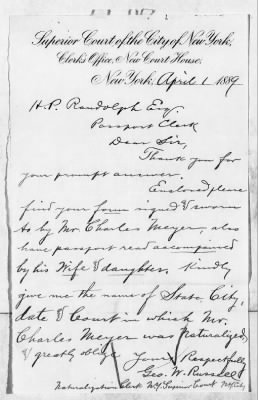 Superior Court of the City of New York.
Clerk's Office, New Court House.
New York, April 1 1889
H. P. Randolph Esq.
Passport Clerk
Dear Sir,
Thank you for
your prompt answer.
Enclosed please
find your form signed & sworn
to by Mr. Charles Meyer, also
have passport read accompanied
by his Wife & daughter. Kindly
give me the name of State, City,
date & Court in which Mr.
Charles Meyer was naturalized,
& greatly oblige Yours Respectfully
Geo. W. Russell
Naturalization Clerk N.Y. Superior Court N.Y. City